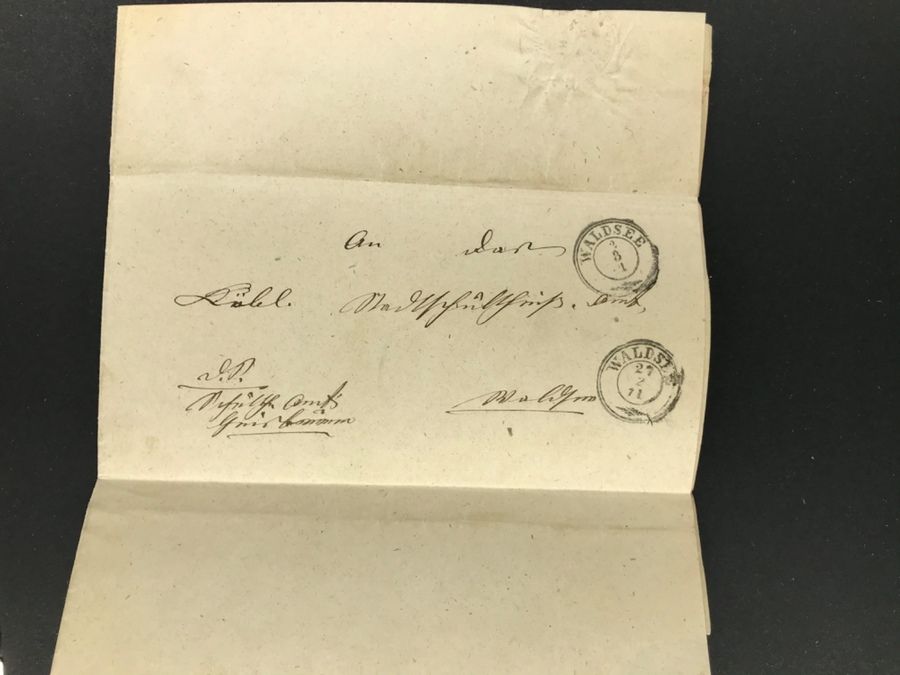 An das
Löbl. Stadtschultheiß. Amt,
Waldsee
D. S.
Schulth. Amt
WALDSEE
WALDSEE
27
2
71